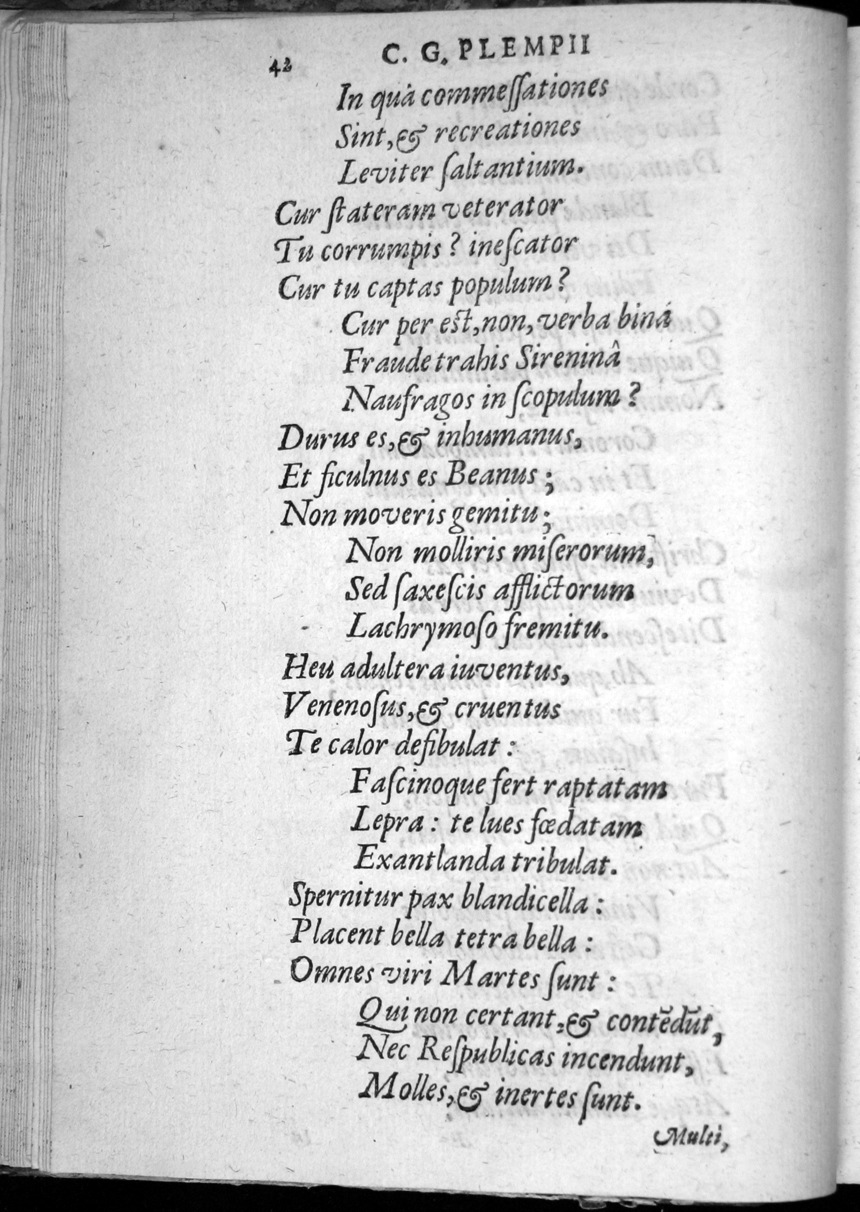 42 C. G. PLEMPII
In quà commeſſationes
Sint, & recreationes
Leviter ſaltantium.
Cur ſtateram veterator
Tu corrumpis? ineſcator
Cur tu captas populum?
Cur per eſt, non, verba biná
Fraude trahis Sireninâ
Naufragos in ſcopulum?
Durus es, & inhumanus,
Et ficulnus es Beanus;
Non moveris gemitu;
Non molliris miſerorum,
Sed ſaxeſcis afflictorum
Lachrymoſo fremitu.
Heu adultera iuventus,
Venenoſus, & cruentus
Te calor defibulat:
Faſcinoque fert raptatam
Lepra: te lues fœdatam
Exantlanda tribulat.
Spernitur pax blandicella:
Placent bella tetra bella:
Omnes viri Martes ſunt:
Qui non certant, & contēdūt,
Nec Reſpublicas incendunt,
Molles, & inertes ſunt.
Multi,